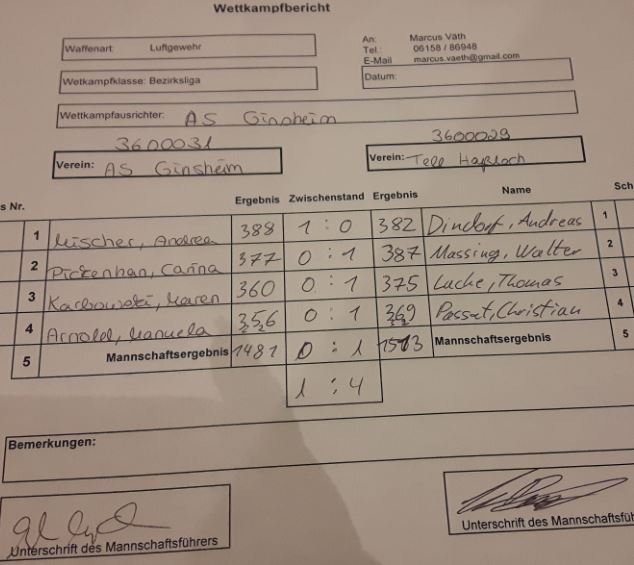 Wettkampfbericht
Waffenart: Luftgewehr
An: Marcus Väth
Tel.: 06158 / 86948
E-Mail marcus.vaeth@gmail.com
Wetkampfklasse: Bezirksliga
Datum:
Wettkampfausrichter: AS Ginsheim
3600031 3600029
Verein: AS Ginsheim Verein: Tell Haßloch
s Nr. Ergebnis Zwischenstand Ergebnis Name Sch
1 Mischer, Andrea 388 1 : 0 382 Dindorf, Andreas 1
2 Pickenhan, Carina 377 0 : 1 387 Massing, Walter 2
3 Karbowski, Maren 360 0 : 1 375 Lache, Thomas 3
4 Arnold, Manuela 356 0 : 1 369 Passet, Christian 4
5 Mannschaftsergebnis 1481 0 : 1 1513 Mannschaftsergebnis 5
1 : 4
Bemerkungen:
Unterschrift des Mannschaftsführers
Unterschrift des Mannschaftsfü